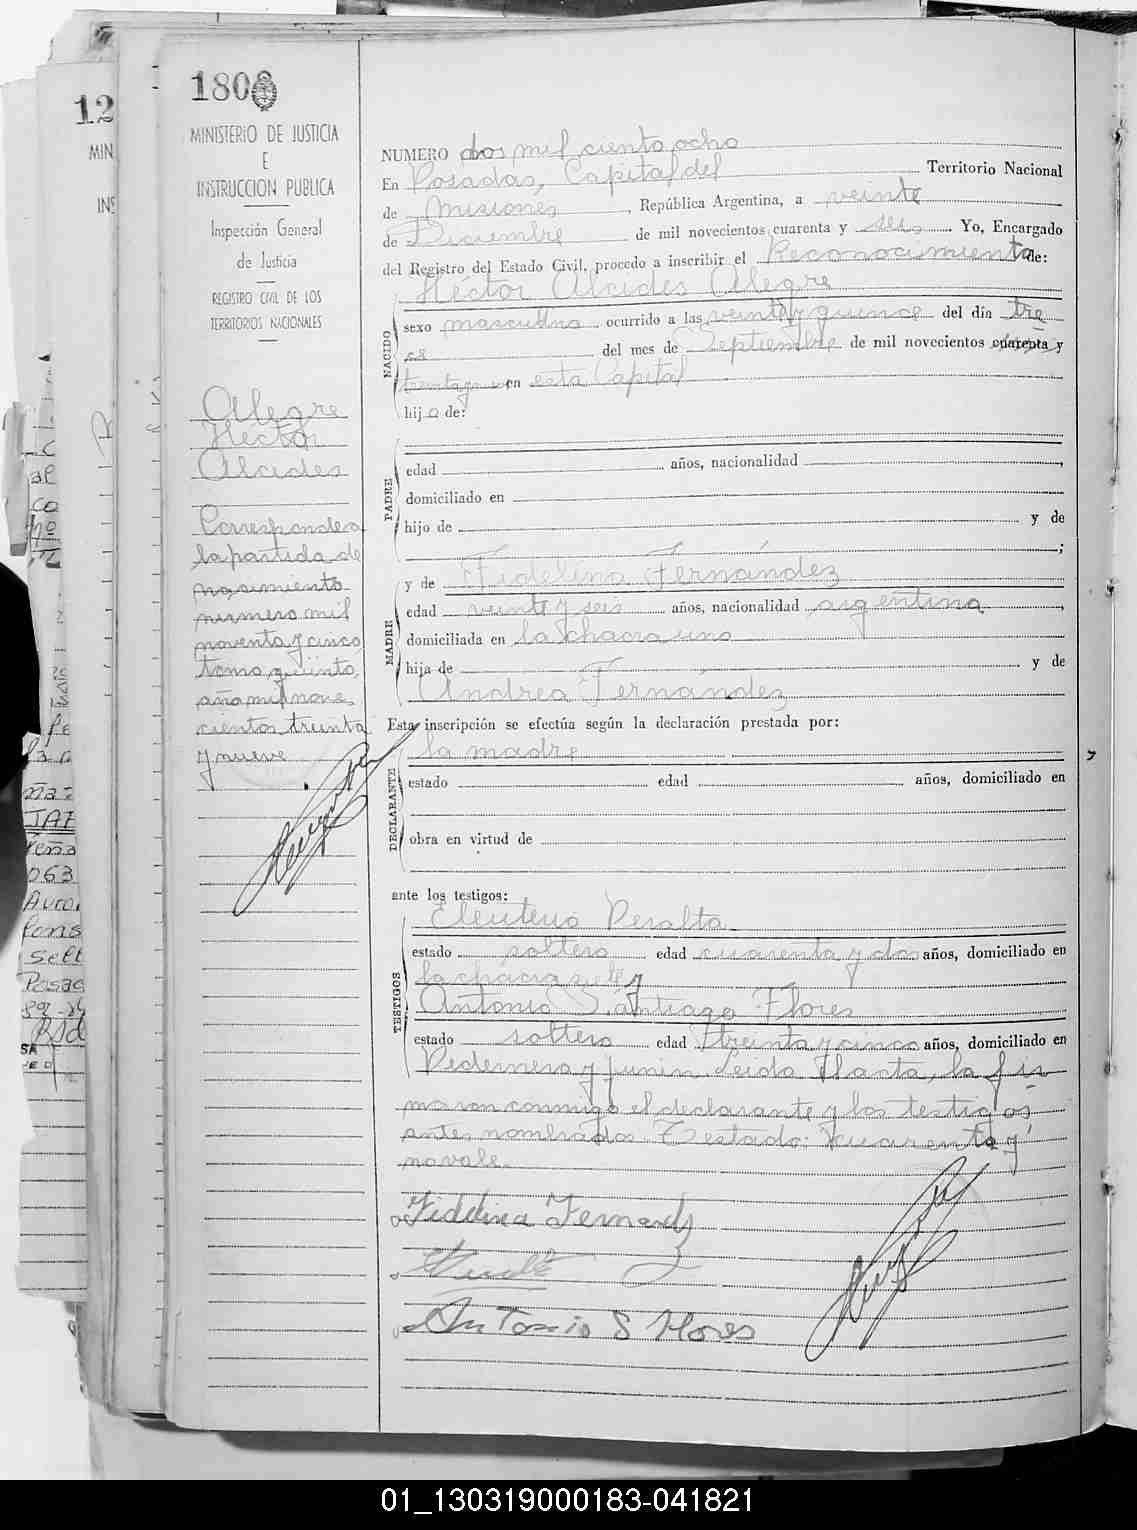 1808
MINISTERIO DE JUSTICIA
E
INSTRUCCION PUBLICA
Inspección General
de Justicia
REGISTRO CIVIL DE LOS
TERRITORIOS NACIONALES
Alegre
Héctor
Alcides
Corresponde a
la partida de
nacimiento
número mil
noventa y cinco
tomo quinto,
año mil nove
cientos treinta
y nueve
NUMERO dos mil ciento ocho
En Posadas, Capital del Territorio Nacional
de Misiones, República Argentina, a veinte
de Diciembre de mil novecientos cuarenta y seis. Yo, Encargado
del Registro del Estado Civil, procedo a inscribir el Reconocimiento de:
Héctor Alcides Alegre
NACIDO
sexo masculino ocurrido a las veinte y quince del día tre
ce del mes de Septiembre de mil novecientos cuarenta y
treinta y en esta Capital
hijo de:
PADRE
edad años, nacionalidad ,
domiciliado en
hijo de y de
;
MADRE
y de Fidelina Fernández
edad veinte y seis años, nacionalidad argentina,
domiciliada en la chacra uno
hija de y de
Andrea Fernández
Esta inscripción se efectúa según la declaración prestada por:
la madre
DECLARANTE
estado edad años, domiciliado en
obra en virtud de
ante los testigos:
Eleuterio Peralta
TESTIGOS
estado soltero edad cuarenta y dos años, domiciliado en
la chacra y
Antonio Santiago Flores
estado soltero edad treinta y cinco años, domiciliado en
Pedernera y Junin. Leida el acta, la fir
maron conmigo el declarante y los testigos
antes nombrados. Testado: cuarenta y
no vale.
Fidelina Fernandz
Antonio S Flores
12
MIN
INS
01_130319000183-041821